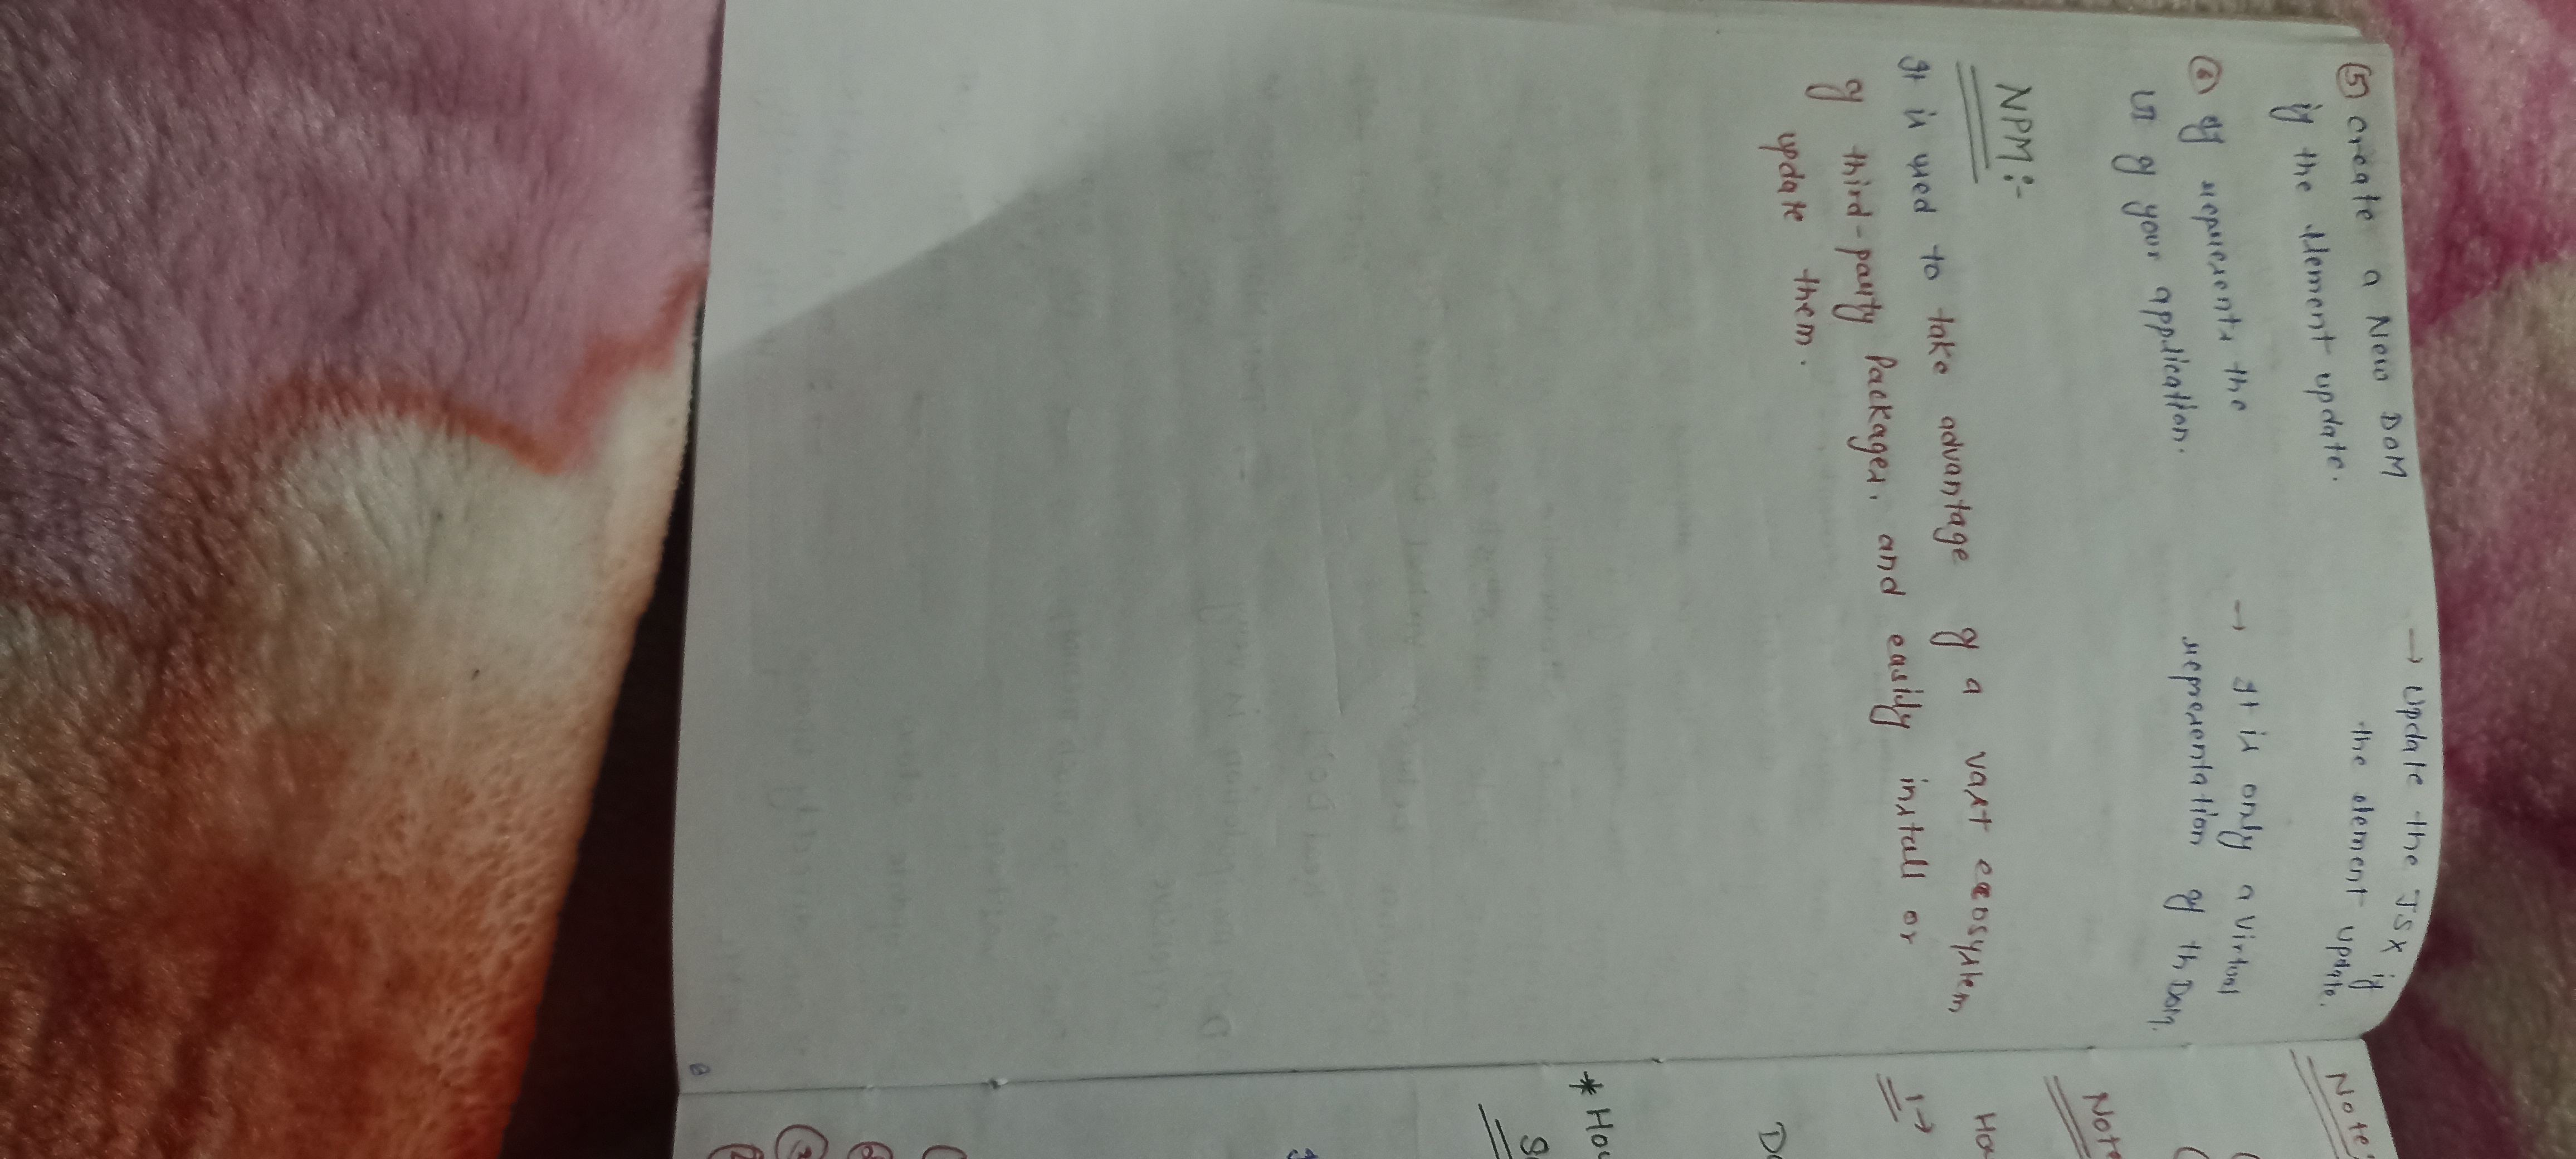 ⑤ Create a New DOM
if the element update.
→ Update the JSX if
the element update.
⑥ It represents the
UI of your application.
→ It is only a Virtual
representation of th DOM.
NPM:-
It is used to take advantage of a vast ecosystem
of third-party Packages, and easily install or
update them.
Note:
Note
1→
* How